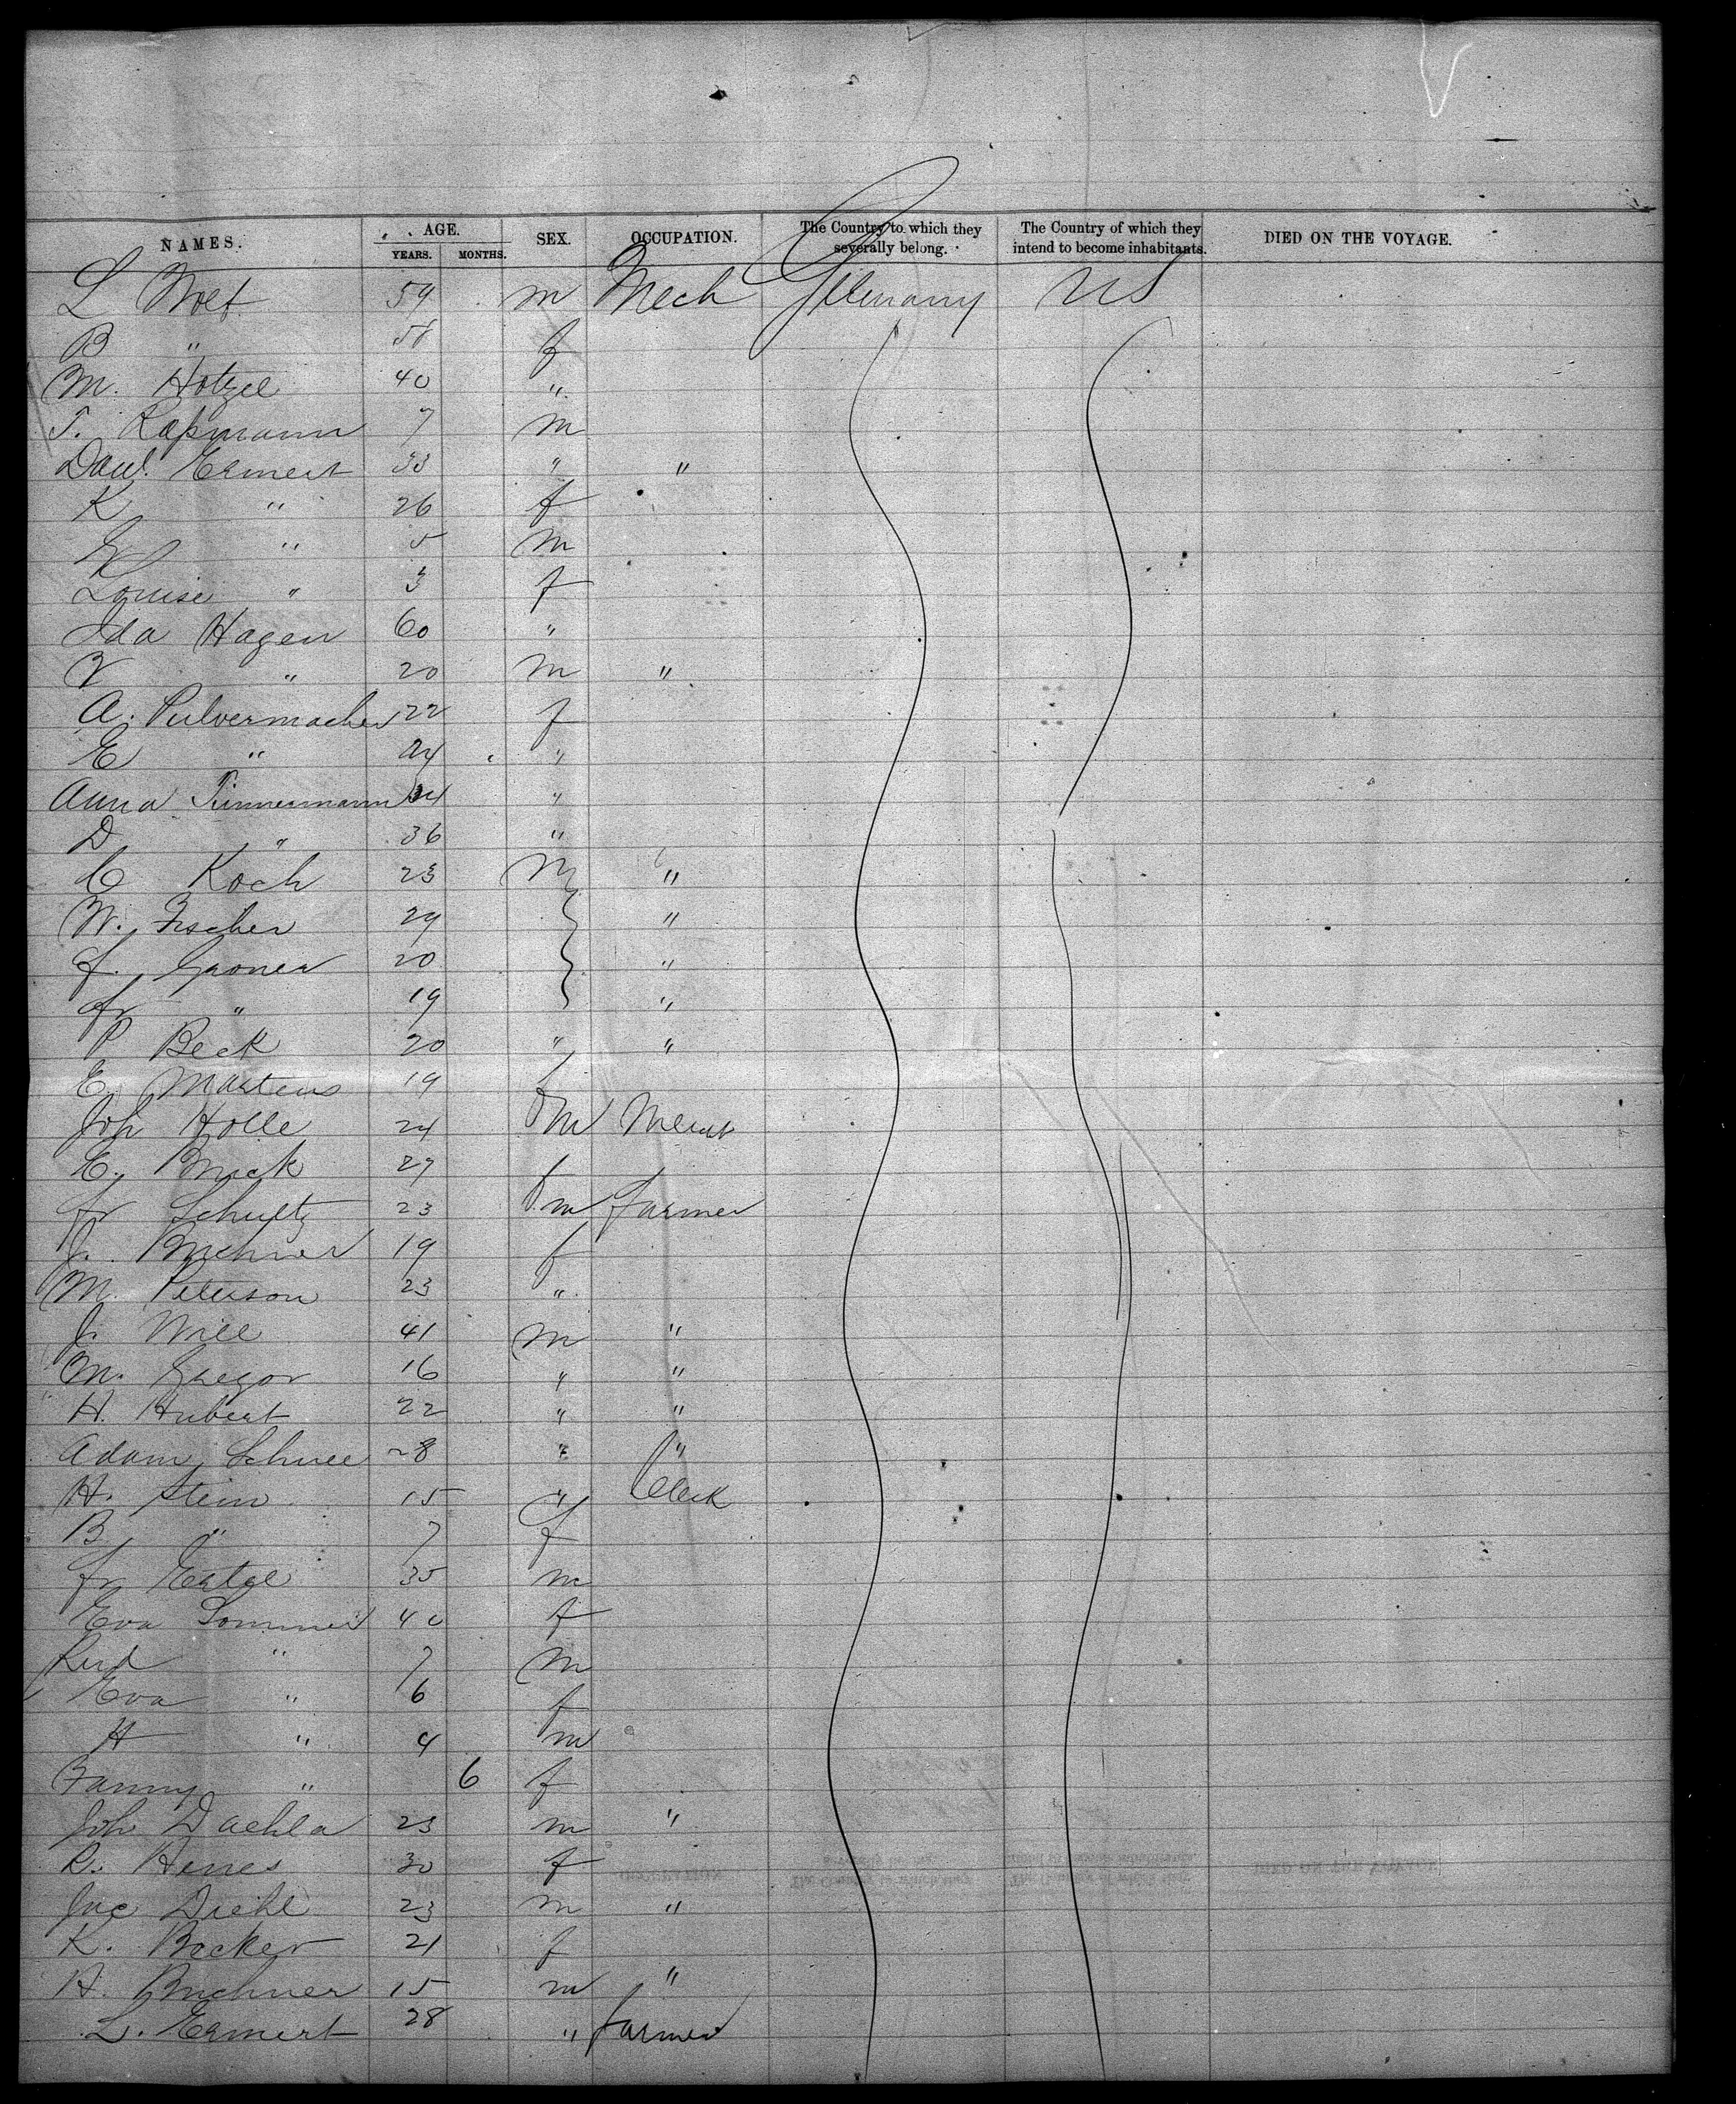 NAMES. AGE. SEX. OCCUPATION. The Country to which they severally belong. The Country of which they intend to become inhabitants. DIED ON THE VOYAGE.
YEARS. MONTHS.
L Wolf 59 m Mech Germany US
B " 58 f
M. Hotzel 40 "
T. Kapmann 7 m
Danl. Ermert 33 " "
K " 26 f
" 5 m
Louise " 3 f
Ida Hagen 60 "
V " 20 m "
A. Pulvermacher 22 f
E " "
Anna Timmermann "
D " 36 "
C Koch 23 m "
W. Fischer 29 "
f. Groner 20 "
fr " 19 "
P Beck 20 " "
E Martens 19 f
Joh Holle 24 m Mercht
E. Brick 27 f
fr Schultz 23 m farmer
J. Buchner 19 f
M. Peterson 23 "
J. Will 41 m "
M. Gregor 16 " "
H. Hubert 22 " "
Adam Schnee 28 " "
H. Stein 15 " Clerk
B " 7 f
fr Ertgel 35 m
Eva Sommer 40 f
Rud " 7 m
Eva " 6 f
H " 4 m
Fanny " 6 f
Joh Daehla 23 m "
R. Henes 30 f
Jac Diehl 23 m "
K. Becker 21 f
H. Buchner 15 m "
L. Ermert 28 " farmer